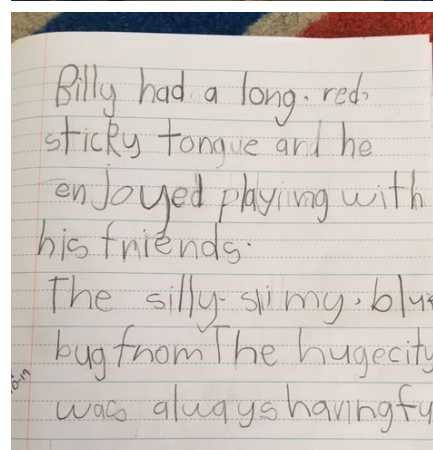 Billy had a long. red,
sticky tongue and he
enJoyed playiing with
his friends.
The silly. slimy. blue
bug from The hugecity
was always havingfu